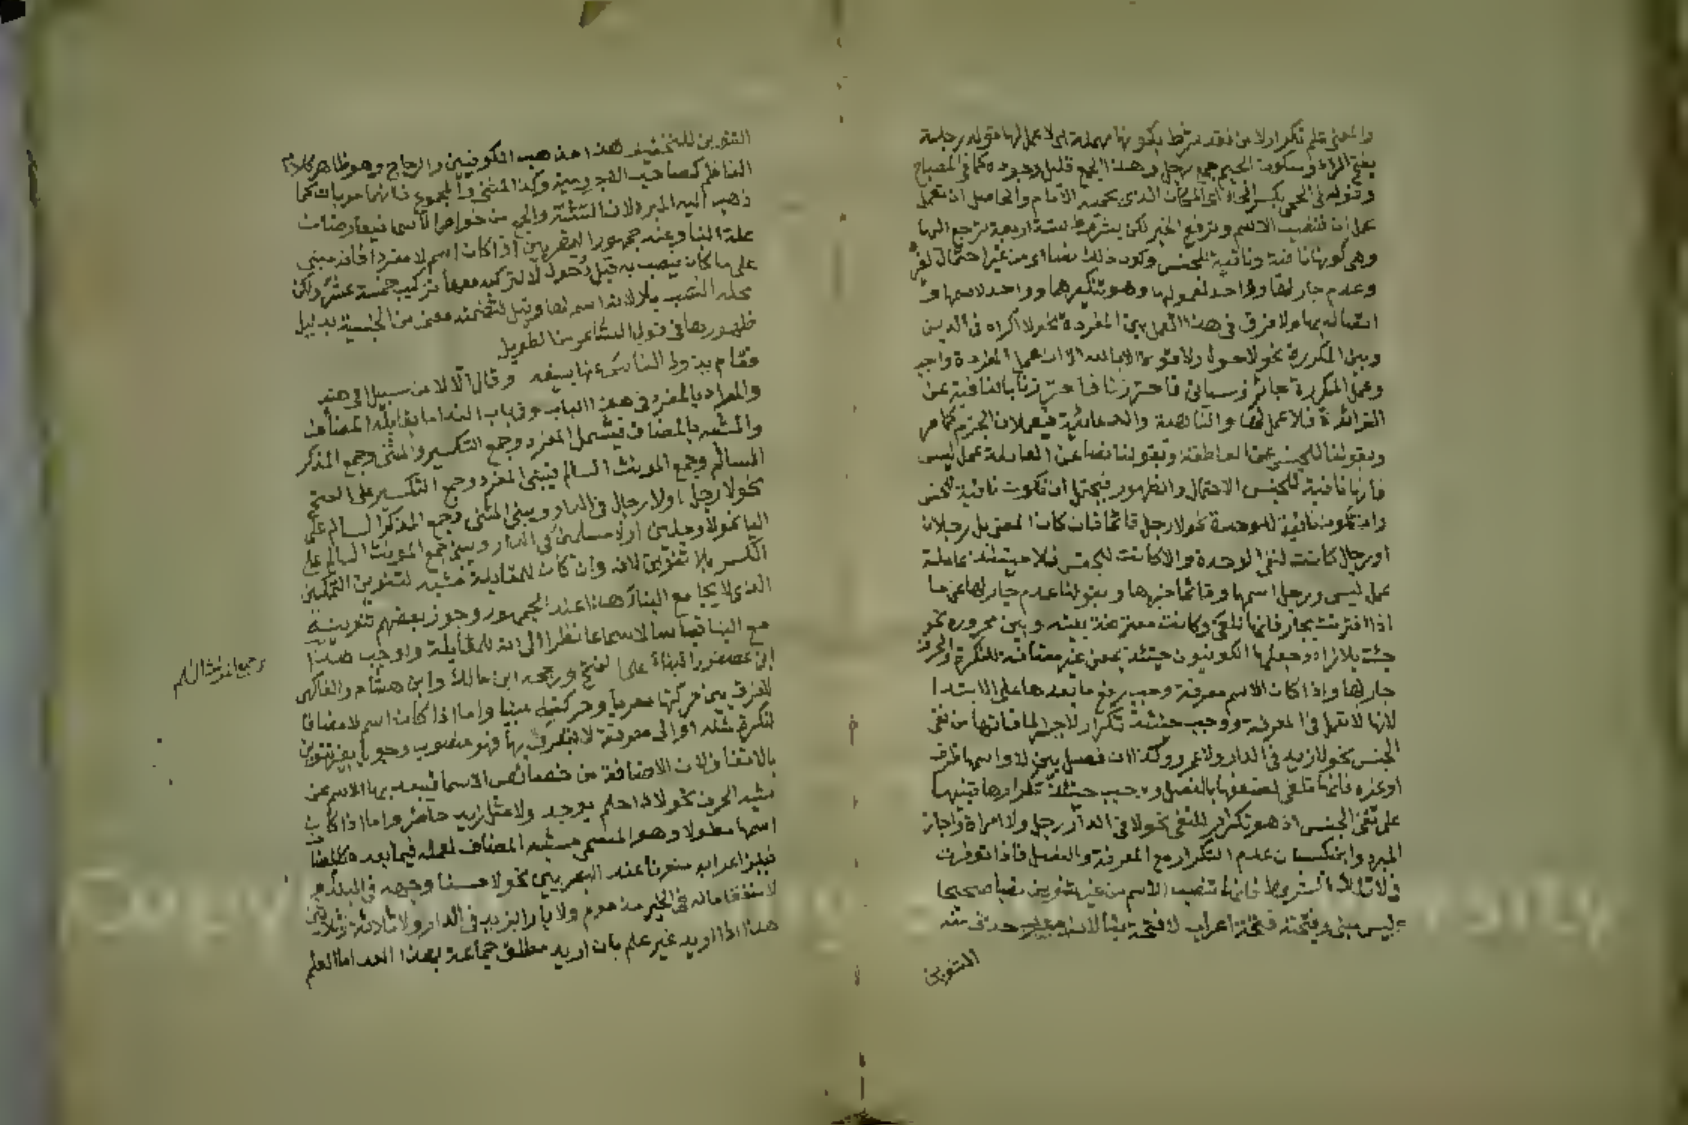 والمعنى علم تكرار لا من فقد شرط بكونها مهملة اي لا عمل لها وقوله رجلة
بفتح الراء وسكون الجيم جمع رجل وهذا الجمع قليل وجوده كما في المصباح
وقوله في الحمى بكسر الحاء اي المكان الذي يحميه الامام والحاصل ان تعمل
عمل ان فتنصب الاسم وترفع الخبر لكن بشروط ستة اربعة ترجع اليها
وهي كونها نافية ونافية للجنس وكون ذلك نصا اي من غير احتمال لغيره
وعدم جار لها وواحد لمعمولها وهو تنكيرهما وواحد لاسمها وهو
اتصاله بها ولا فرق في هذا العمل بين المفردة نحو لا اكراه في الدين
وبين المكررة نحو لا حول ولا قوة الا بالله الا ان عمل المفردة واجب
وعمل المكررة جائز وسياتي فاحترزنا فاحترزنا بالنافية عن
الزائدة فلا عمل لها والناهية والدعائية فيعملان الجزم كما مر
وبقولنا للجنس عن العاطفة وبقولنا نصا عن العاملة عمل ليس
فانها نافية للجنس الاحتمال والظهور فيحتمل ان تكون نافية للجنس
وان تكون نافية للوحدة نحو لا رجل قائما فان كان المعنى بل رجلان
او رجال كانت لنفي الوحدة والا كانت للجنس فلا حينئذ عاملة
عمل ليس ورجل اسمها وقائما خبرها وبقولنا عدم جار لها عن ما
اذا اقترنت بجار فانها تلغى وكانت معترضة بينه وبين مجروره نحو
جئت بلا زاد وجعلها الكوفيون حينئذ بمعنى غير مضافة للنكرة والحرف
جار لها واذا كان الاسم معرفة وجب رفع ما بعدها على الابتدا
لانها لا تعمل في المعرفة ووجب حينئذ تكرار لا جبرا لما فاتها من نفي
الجنس نحو لا زيد في الدار ولا عمرو وكذا ان فصل بين لا واسمها ظرف
او غيره فانها تلغى لضعفها بالفصل ويجب حينئذ تكرارها تنبيها
على نفي الجنس اذ هو تكرار للنفي نحو لا في الدار رجل ولا امراة واجاز
المبرد وابن كيسان عدم التكرار مع المعرفة والفصل فاذا توفرت
في لا تلك الشروط فانها تنصب الاسم من غير تنوين نصبا صحيحا
وليس مبني وفتحته فتحة اعراب لا فتحة بنا لانه معرب حذف منه
التنوين
التنوين للتخفيف هذا مذهب الكوفيين والزجاج وهو ظاهر كلام
الناظم كصاحب الاجرومية وكذا المثنى والمجموع فانهما معربات كما
ذهب اليه المبرد لان التثنية والجمع من خواص الاسما فيعارضان
علة البنا وعند جمهور البصريين اذا كان اسم لا مفردا فانه مبني
على ما كان ينصب به قبل دخول لا لتركبه معها تركيب خمسة عشر ولكن
محله النصب بلا لانه اسم لها وقيل لتضمنه معنى من الجنسية بدليل
ظهورها في قول الشاعر من الطويل
فقام يذود الناس عنها بسيفه وقال الا لا من سبيل الى هند
والمراد بالمفرد في هذا الباب وفي باب الندا ما يقابله المضاف
والمشبه بالمضاف فيشمل المفرد وجمع التكسير والمثنى وجمع المذكر
السالم وجمع المونث السالم فيبنى المفرد وجمع التكسير على الفتح
نحو لا رجل او لا رجال في الدار ويبنى المثنى وجمع المذكر السالم على
الياء نحو لا رجلين او لا مسلمين في الدار ويبنى جمع المونث السالم على
الكسر بلا تنوين لانه وان كان للمقابلة مشبه لتنوين التمكين
الذي لا يجامع البناء هذا عند الجمهور وجوز بعضهم تنوينه
مع البنا قياسا لا سماعا نظرا الى انه للمقابلة واوجب
ابن عصفور البناء على الفتح ورجحه ابن مالك وابن هشام والفاكهي
للفرق بين حركتها معربا وحركته مبنيا واما اذا كان اسم لا مضافا
لنكرة مثله او الى معرفة لا يتعرف بها فهو منصوب وجوبا بغير تنوين
بالاتفاق لان الاضافة من خصائص الاسما فيبعد بها الاسم عن
شبه الحرف نحو لا ذا حلم يوجد ولا مثل زيد حاضر واما اذا كان
اسمها مطولا وهو المسمى مشبه المضاف لعمله فيما بعده
فيلزم اعرابه منونا عند البصريين نحو لا حسنا وجهه في البلد و
لا منفقا ماله في الخير مذموم ولا بارا لزيد في الدار ولا ثلاثة وثلاثين
هذا اذا اريد غير علم بان اريد مطلق جماعة بهذا العدد اما العلم
جمع المونث السالم
Copy